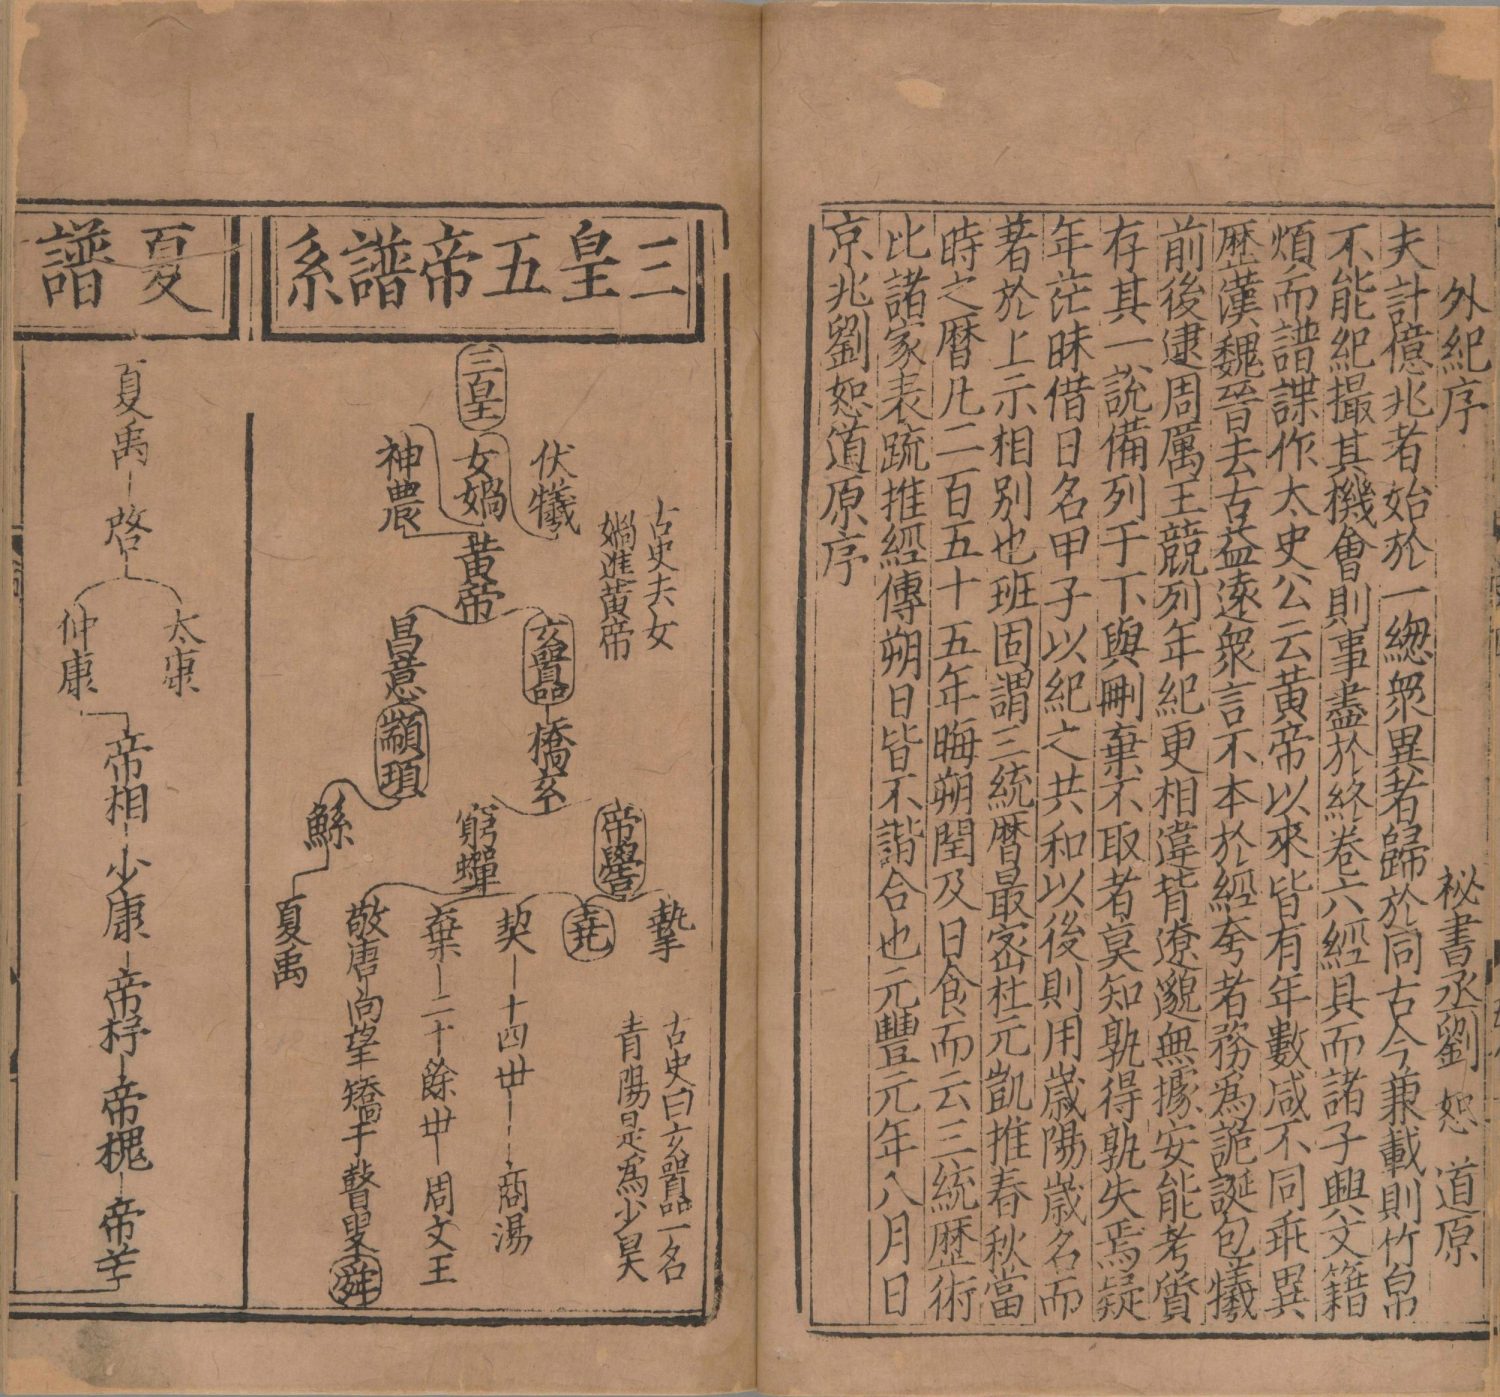 外紀序
祕書丞劉恕道原
夫計億兆者始於一緫衆異者歸於同古今兼載則竹帛
不能紀撮其機會則事盡於終卷六經具而諸子興文籍
煩而譜諜作太史公云黃帝以來皆有年數咸不同乖異
歴漢魏晉去古益逺衆言不本於經夸者務為詭誕包犧
前後逮周厲王競列年紀更相違背遼邈無據安能考質
存其一說備列于下與刪棄不取者莫知孰得孰失焉疑
年茫昧借日名甲子以紀之共和以後則用歳陽歳名而
著於上示相别也班固謂三統暦最宻杜元凱推春秋當
時之暦凡二百五十五年晦朔閏及日食而云三統歴術
比諸家表䟽推經傳朔日皆不諧合也元豐元年八月日
京兆劉恕道原序
三皇五帝譜系
三皇
伏犧
女媧
神農
古史夫女
媧進黃帝
黃帝
玄囂
昌意
顓頊
橋玄
帝嚳
窮蟬
鯀
夏禹
摯
堯
契 十四世 商湯
棄 二十餘世 周文王
敬唐 向望 矯干 瞽叟 舜
古史曰玄囂一名
青陽是為少昊
夏譜
夏禹
啓
太康
仲康
帝相
少康
帝杼
帝槐
帝芒